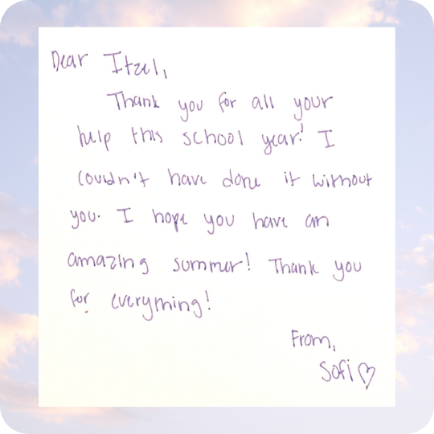 Dear Itzel,
Thank you for all your
help this school year! I
couldn't have done it without
you. I hope you have an
amazing summer! Thank you
for everything!
From,
Sofi ♡